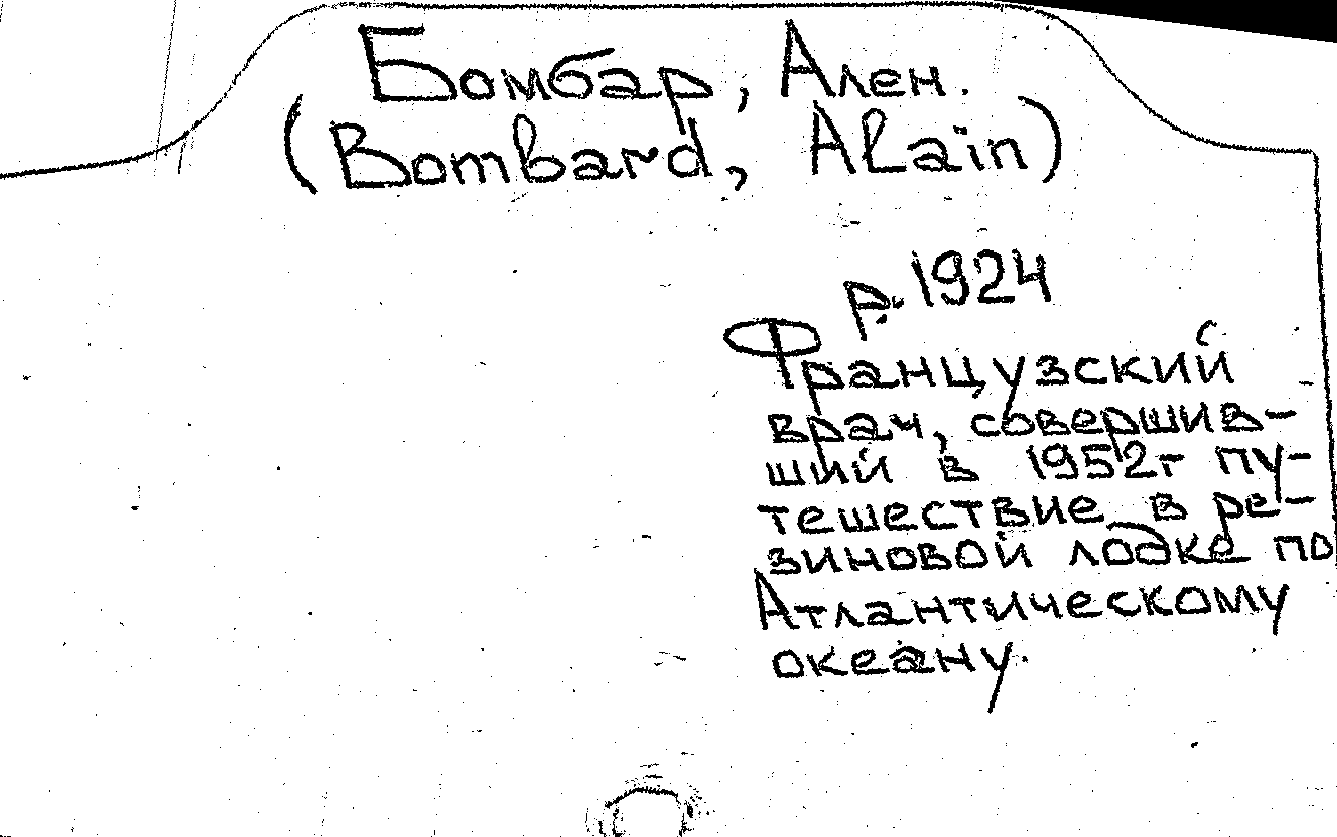 Бомбар, Ален.
(Bombard, Alain)
р. 1924
Французский
врач, совершив-
ший в 1952г пу-
тешествие в ре-
зиновой лодке по
Атлантическому
океану.